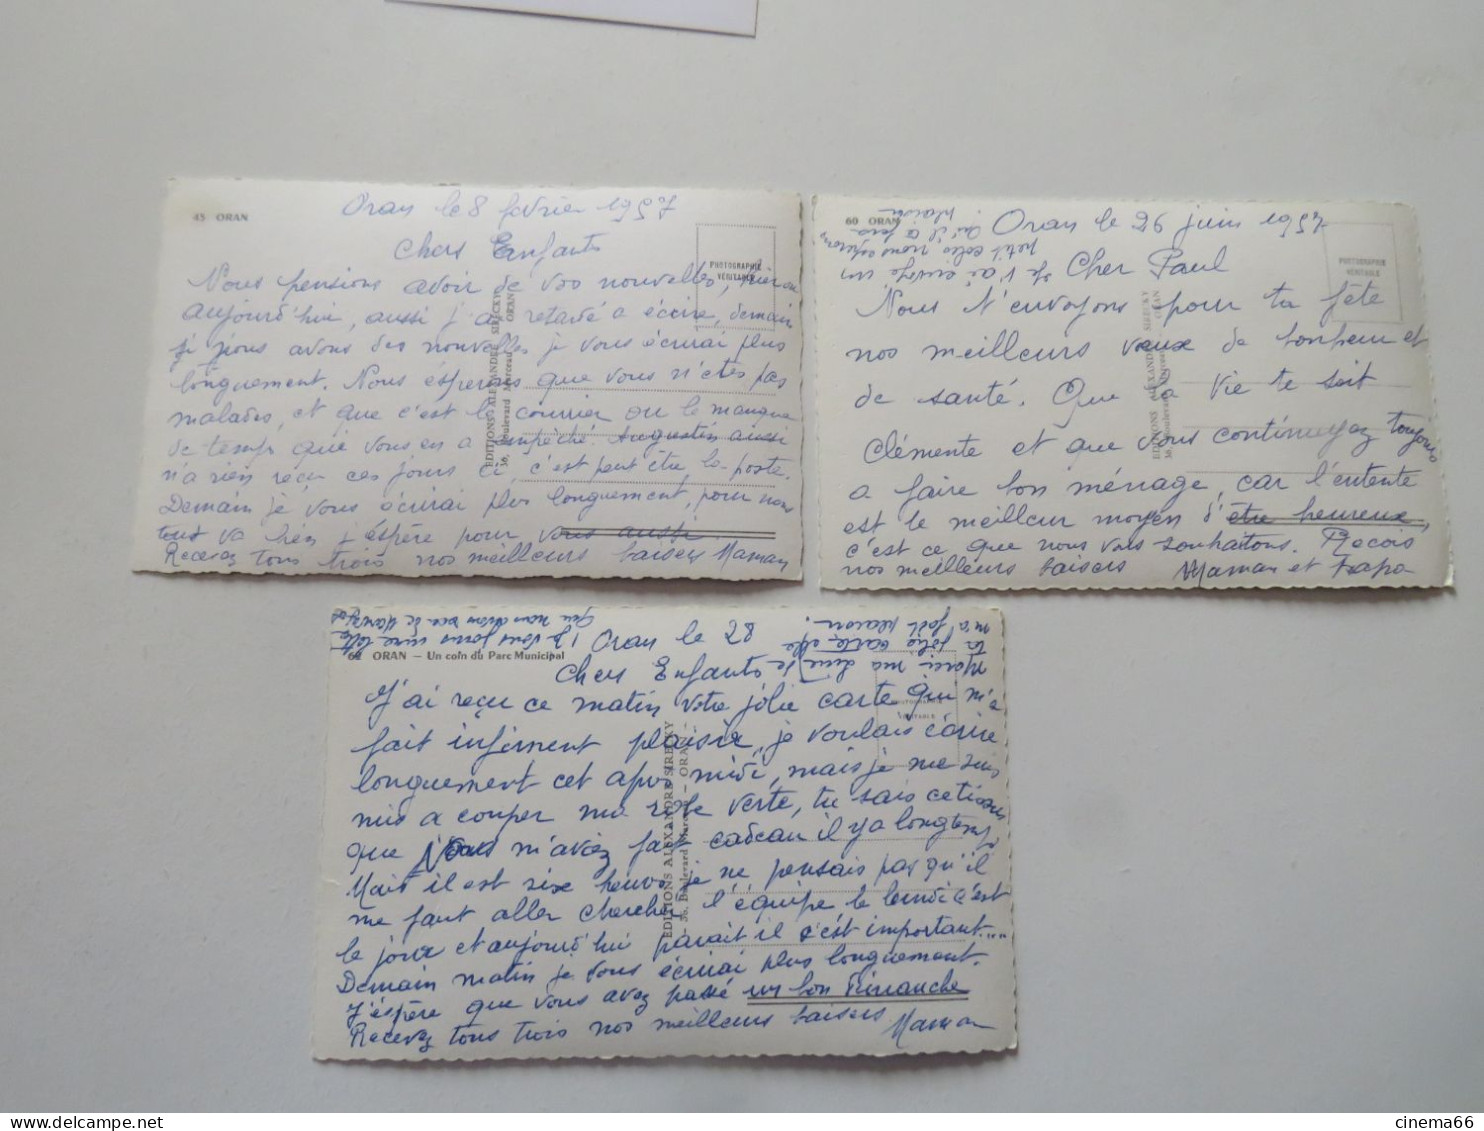 45 ORAN
Oran le 8 février 1957
Chers Enfants
PHOTOGRAPHIE
VÉRITABLE
EDITIONS ALEXANDRE SIRECKY
36, Boulevard Marceau — ORAN
Nous pensions avoir de vos nouvelles, hier ou
aujourd'hui, aussi j'ai retardé a écrire, demain
si nous avons des nouvelles je vous écrirai plus
longuement. Nous espérons que vous n'êtes pas
malades, et que c'est le courrier ou le manque
de temps qui vous en a empêché. Augustin aussi
n'a rien reçu ces jours ci, c'est peut être la poste.
Demain je vous écrirai plus longuement, pour nous
tout va bien j'espère pour vous aussi.
Recevez tous trois nos meilleurs baisers Maman
60 ORAN
Oran le 26 juin 1957
Je t'ai envoyé un
petit colis nous espérons
qu'il te fera
plaisir.
Cher Paul
PHOTOGRAPHIE
VÉRITABLE
EDITIONS ALEXANDRE SIRECKY
36, Boulevard — ORAN
Nous t'envoyons pour ta fête
nos meilleurs vœux de bonheur et
de santé. Que la vie te soit
clémente et que vous continuyez toujours
a faire bon ménage, car l'entente
est le meilleur moyen d'être heureux,
c'est ce que nous vous souhaitons. Reçois
nos meilleurs baisers Maman et Papa
62 ORAN — Un coin du Parc Municipal
Oran le 28
Chers Enfants
Merci ma
ta jolie carte elle
m'a fait plaisir.
Je vous joins une lettre
que nous avons de
PHOTOGRAPHIE
VÉRITABLE
EDITIONS ALEXANDRE SIRECKY
36, Boulevard Marceau — ORAN
J'ai reçu ce matin votre jolie carte qui m'a
fait infiniment plaisir, je voulais écrire
longuement cet apres midi, mais je me suis
mis a couper ma robe verte, tu sais ce tissus
que vous m'aviez fait cadeau il y a longtemps
Mais il est six heures je ne pensais pas qu'il
me faut aller chercher l'équipe le lundi c'est
le jour et aujourd'hui parait il c'est important....
Demain matin je vous écrirai plus longuement.
J'éspère que vous avez passé un bon Dimanche
Recevez tous trois nos meilleurs baisers Maman
cinema66